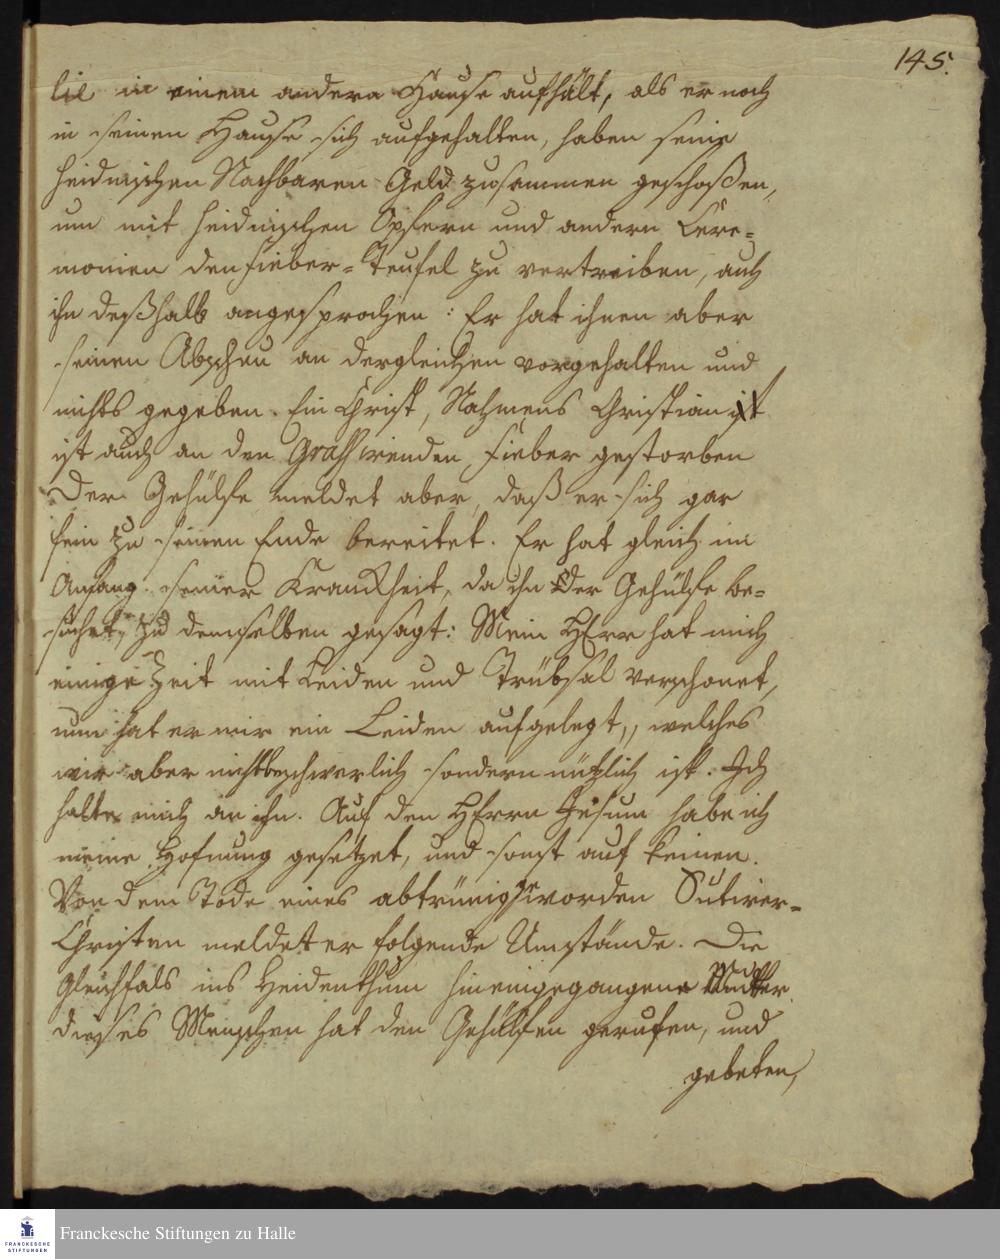 145.
lie in einem andern Hause aufhält, als er noch
in seinen Hause sich aufgehalten, haben seine
heidnischen Nachbaren Geld zusammen geschoßen,
um mit heidnischen Opfern und andern Cere=
monien den Fieber=Teufel zu vertreiben, auch
ihn deßhalb angesprochen: Er hat ihnen aber
seinen Abscheu an dergleichen vorgehalten und
nichts gegeben. Ein Christ, Nahmens Christian
ist auch an den Grassirenden Fieber gestorben
Der Gehülfe meldet aber, daß er sich gar
fein zu seinen Ende bereitet. Er hat gleich im
Anfang seiner Kranckheit, da ihn der Gehülfe be=
suchet, zu demselben gesagt: Mein HErr hat mich
einige Zeit mit Leiden und Trübsal verschonet,
nun hat er mir ein Leiden aufgelegt, welches
mir aber nicht beschwerlich sondern nützlich ist. Ich
halte mich an ihn. Auf den HErrn Jesum habe ich
meine Hofnung gesetzet, und sonst auf keinen.
Von dem Tode eines abtrünig geworden Sutirer=
Christen meldet er folgende Umstände. Die
gleichfals ins Heidenthum hineingegangene Mutter
dieses Menschen hat den Gehülfen gerufen, und
gebeten,
FRANCKESCHE
STIFTUNGEN
Franckesche Stiftungen zu Halle